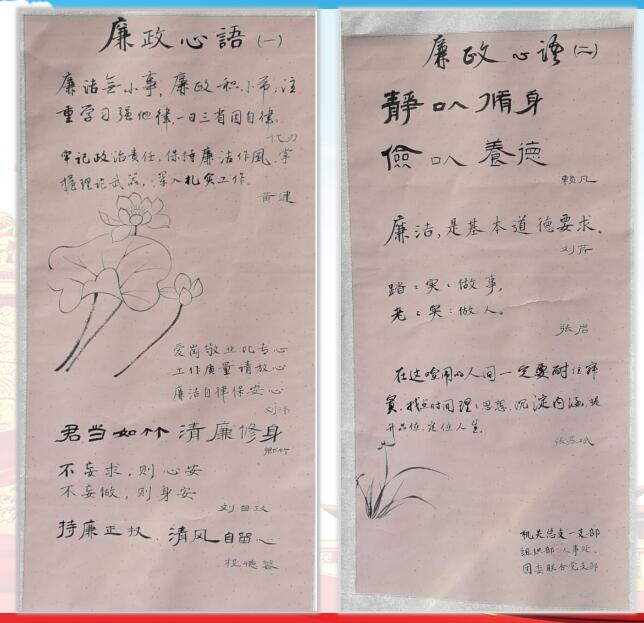 廉政心語(一)
廉洁无小事,廉政积小节;注
重学习强他律,一日三省固自律.
牢记政治责任,保持廉洁作风,掌
握理论武器,深入扎实工作.
黄建
爱岗敬业比专心
工作质量请放心
廉洁自律保安心
刘
君当如竹 清廉修身
不妄求,则心安
不妄做,则身安
刘
持廉正权 清风自留心
程德蓉
廉政心语(二)
靜以脩身
儉以養德
赖凡
廉洁,是基本道德要求。
刘芹
踏:实:做事,
老:实:做人。
张岩
在这喧闹的人间一定要耐住寂
寞,找点时间理:思想,沉淀内涵,提
升品位,定位人生。
张
机关总支一支部
组织部、人事处、
团委联合党支部